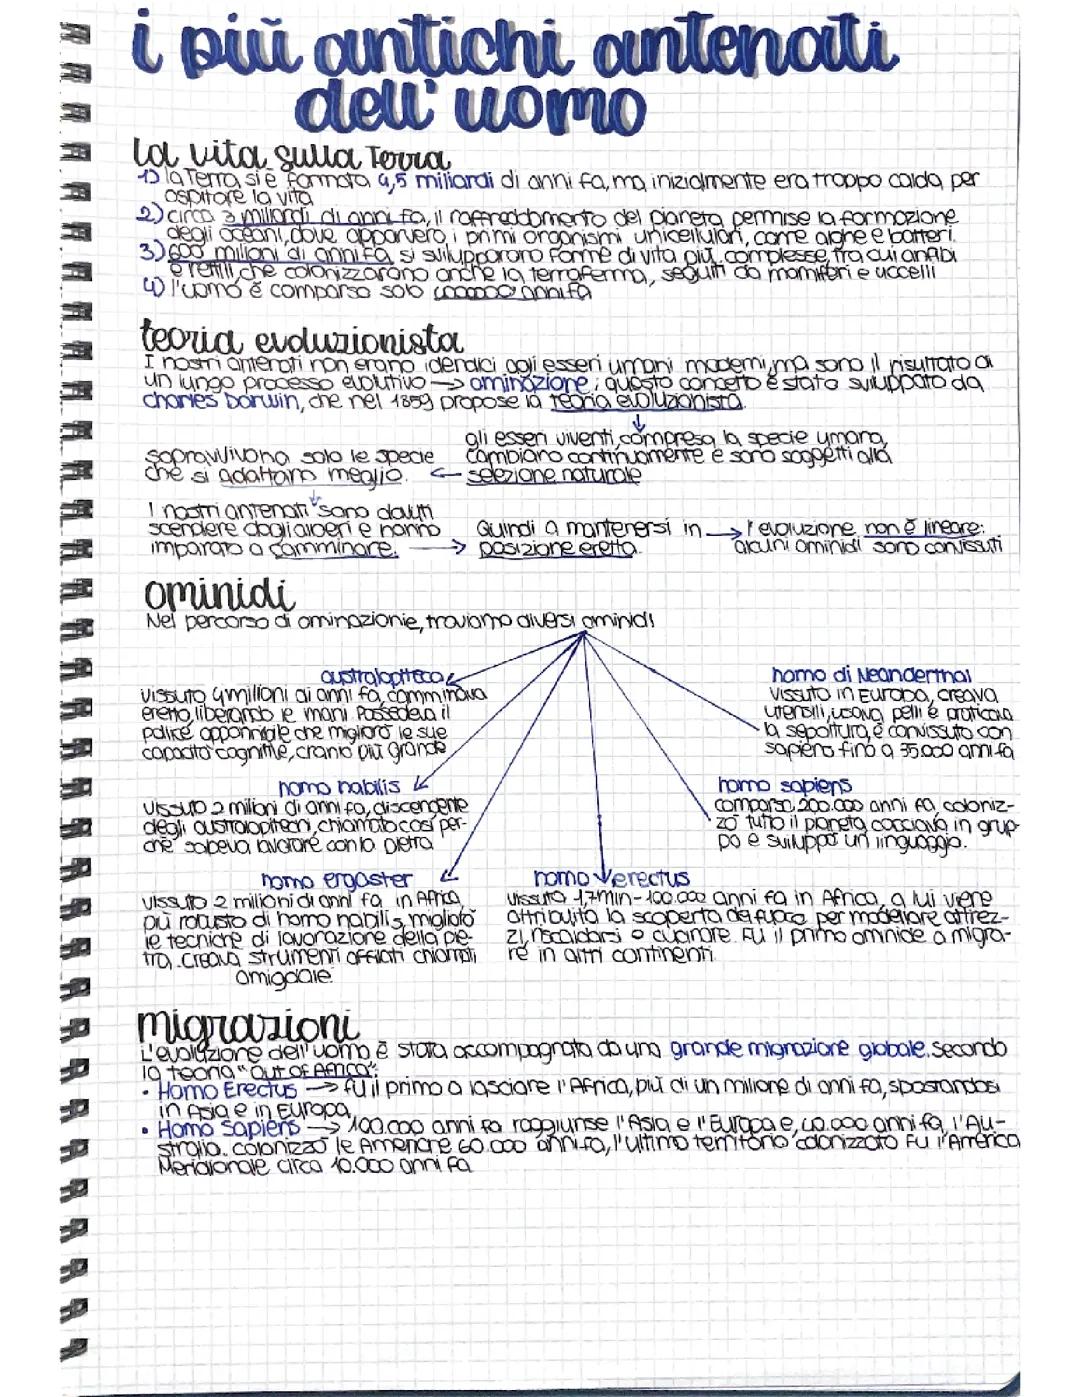 i più antichi antenati
dell'uomo
la vita sulla Terra
1) la Terra si è formata 4,5 miliardi di anni fa, ma inizialmente era troppo calda per
ospitare la vita
2) circa 3 miliardi di anni fa, il raffreddamento del pianeta permise la formazione
degli oceani, dove apparvero i primi organismi unicellulari, come alghe e batteri.
3) 600 milioni di anni fa, si svilupparono forme di vita più complesse, tra cui anfibi
e rettili, che colonizzarono anche la terraferma, seguiti da mammiferi e uccelli
4) l'uomo è comparso solo anni fa
teoria evoluzionista
I nostri antenati non erano identici agli esseri umani moderni, ma sono il risultato di
un lungo processo evolutivo → ominazione; questo concetto è stato sviluppato da
charles Darwin, che nel 1859 propose la teoria evoluzionista.
gli esseri viventi, compresa la specie umana,
cambiano continuamente e sono soggetti alla
selezione naturale
sopravvivono solo le specie
che si adattano meglio. ←
I nostri antenati sono dovuti
scendere dagli alberi e hanno
imparato a camminare. →
Quindi a mantenersi in →
posizione eretta.
l'evoluzione non è lineare:
alcuni ominidi sono convissuti
ominidi
Nel percorso di ominazionie, troviamo diversi ominidi
australopiteco
vissuto 4 milioni di anni fa, camminava
eretto, liberando le mani. Possedeva il
pollice opponibile che migliorò le sue
capacità cognitive, cranio più grande
homo di Neanderthal
vissuto in Europa, creava
utensili, usava pelli e praticava
la sepoltura, è convissuto con
sapiens fino a 35.000 anni fa
homo habilis
vissuto 2 milioni di anni fa, discendente
degli australopitechi, chiamato così per-
chè sapeva lavorare con la pietra
homo sapiens
comparso 200.000 anni fa, coloniz-
zò tutto il pianeta, cacciava in grup-
po e sviluppò un linguaggio.
homo ergaster
vissuto 2 milioni di anni fa in Africa,
più robusto di homo habilis, migliorò
le tecniche di lavorazione della pie-
tra. creava strumenti affilati chiamati
amigdale.
homo erectus
vissuto 1,7mln-100.000 anni fa in Africa, a lui viene
attribuita la scoperta del fuoco per modellare attrez-
zi, riscaldarsi e cucinare. Fu il primo ominide a migra-
re in altri continenti.
migrazioni
L'evoluzione dell'uomo è stata accompagnata da una grande migrazione globale. secondo
la teoria "out of Africa":
• Homo Erectus → fu il primo a lasciare l'Africa, più di un milione di anni fa, spostandosi
in Asia e in Europa,
• Homo Sapiens → 100.000 anni fa raggiunse l'Asia e l'Europa e, anni fa, l'Au-
stralia. colonizzò le Americhe 60.000 anni fa, l'ultimo territorio colonizzato fu l'America
Meridionale circa 10.000 anni fa